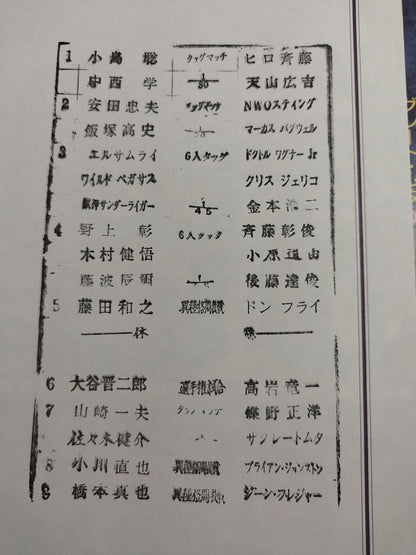 1 小島 聡 タッグマッチ ヒロ斉藤
中西 学 1/30 天山広吉
2 安田忠夫 タッグマッチ NWOスティング
飯塚高史 マーカス バグウェル
3 エルサムライ 6人タッグ ドクトル ワグナーJr
ワイルド ペガサス クリス ジェリコ
獣神サンダーライガー 1/45 金本浩二
4 野上 彰 6人タッグ 斉藤彰俊
木村健悟 小原道由
藤波辰爾 後藤達俊
5 藤田和之 異種格闘技戦 ドン フライ
休 憩
6 大谷晋二郎 選手権試合 高岩竜一
7 山崎一夫 タッグマッチ 蝶野正洋
佐々木健介 グレートムタ
8 小川直也 異種格闘技戦 ブライアン・ジョンストン
9 橋本真也 異種格闘技戦 ジーン・フレジャー